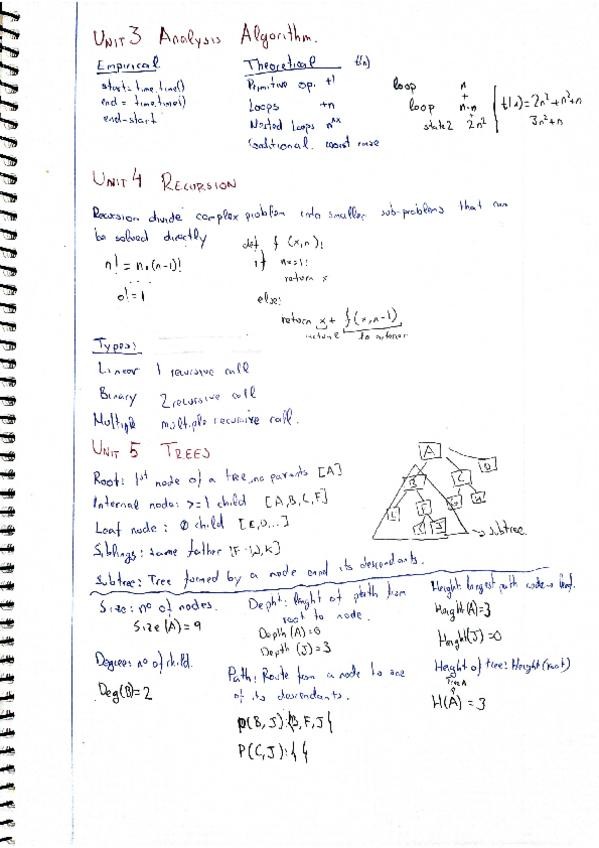 UNIT 3 Analysis Algorithm.
Empirical
start = time.time()
end = time.time()
end-start
Theoretical t(n)
Primitive op. +1
Loops +n
Nested Loops
Conditional. worst case
loop n
+
loop n·n
+
2n²
t(n)=2n²+n²+n
3n²+n
UNIT 4 RECURSION
Recursion divide complex problem into smaller sub-problems that can
be solved directly
n! = n·(n-1)!
0! = 1
def f (x,n):
if n==1:
return x
else:
return x + f(x,n-1)
Types:
Linear 1 recursive call
Binary 2 recursive call
Multiple multiple recursive call.
UNIT 5 TREES
Root: 1st node of a tree, no parents [A]
Internal node: >=1 child [A,B,C,F]
Leaf node: 0 child [E,D,...]
Siblings: same father
Subtree: Tree formed by a node and its descendants.
A
B
C
D
E
F
J
→ subtree
Size: nº of nodes.
Size (A) = 9
Degree: nº of child.
Deg(B)=2
Depht: lenght of path from
root to node.
Depth (A)=0
Depth (J)=3
Path: Route from a node to one
of its descendants.
p(B,J):{B,F,J{
P(C,J):{{
Height: longest path node→leaf.
Height(A)=3
Height(J)=0
Height of tree: Height(root)
Tree A
H(A) = 3